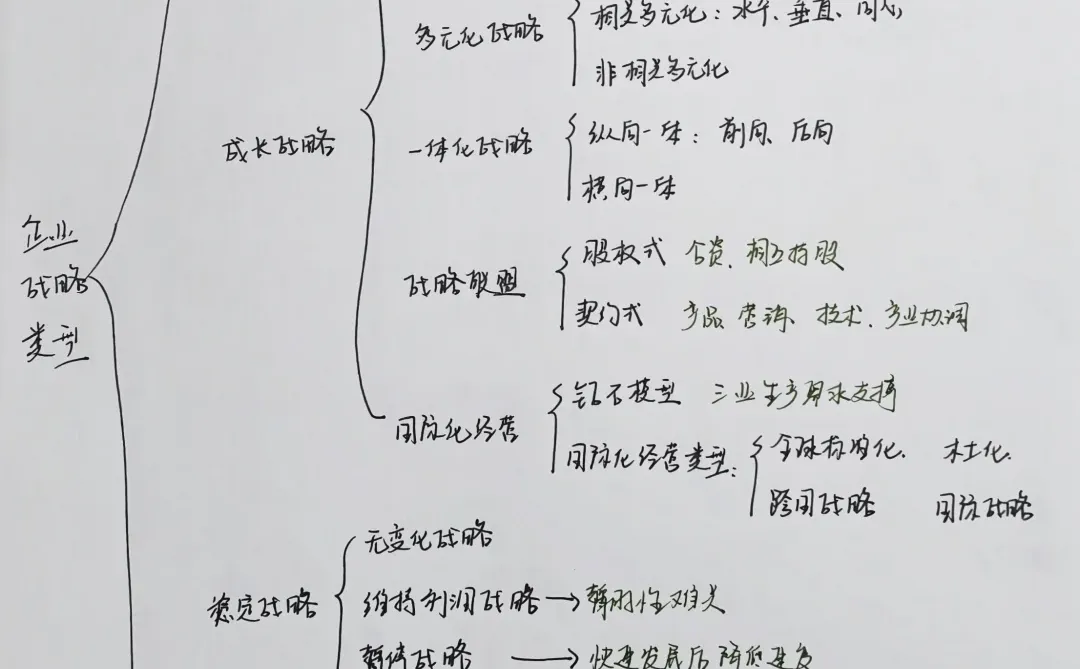 多元化战略
相关多元化：水平、垂直、同心
非相关多元化
成长战略
一体化战略
纵向一体：前向、后向
横向一体
企业
战略
类型
战略联盟
股权式 合资、相互持股
契约式 产品 营销、技术、产业协调
国际化经营
钻石模型 三业生产需求支持
国际化经营类型：
全球标准化、本土化、
跨国战略 国际战略
稳定战略
无变化战略
维持利润战略→暂时性难关
暂停战略→快速发展后降低速度